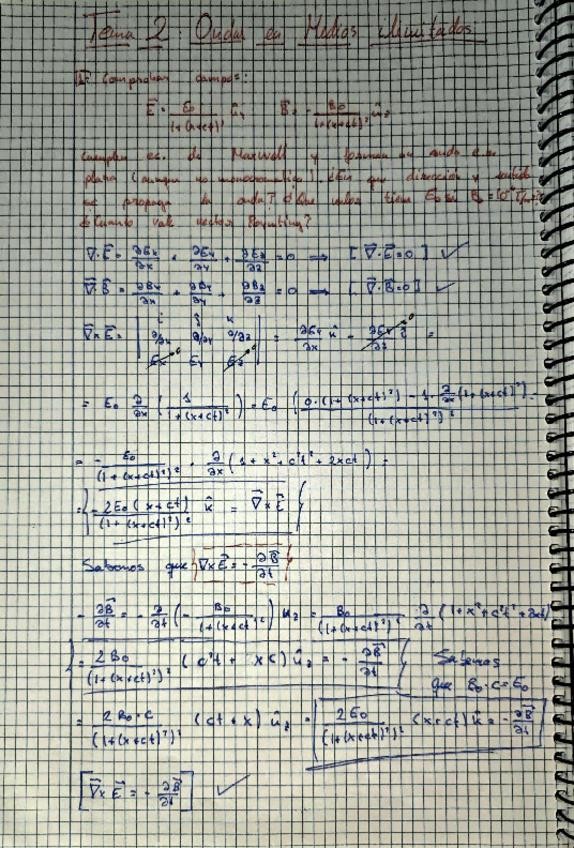 Tema 2: Ondas en Medios ilimitados.
1. Comprobar campos:
E = E₀/(1+(x+ct)²) û_y    B = - B₀/(1+(x+ct)²) û_z
Cumplen ec. de Maxwell y forman una onda e.m.
plana (aunque no monocromática). ¿En que dirección y sentido
se propaga la onda? ¿Que valor tiene E₀ si B₀ =
¿Cuanto vale vector Poynting?
∇·E = ∂Ex/∂x + ∂Ey/∂y + ∂Ez/∂z = 0 ⟹ [∇·E = 0] ✓
∇·B = ∂Bx/∂x + ∂By/∂y + ∂Bz/∂z = 0 ⟹ [∇·B = 0] ✓
∇×E = | i j k ; ∂/∂x ∂/∂y ∂/∂z ; Ex→0 Ey Ez→0 | = ∂Ey/∂x k̂ - ∂Ey/∂z→0 î =
= E₀ ∂/∂x (1/(1+(x+ct)²)) = E₀ (0·(1+(x+ct)²) - 1·∂/∂x(1+(x+ct)²))/(1+(x+ct)²)² =
= - E₀/(1+(x+ct)²)² · ∂/∂x (1+x²+c²t²+2xct) =
= - 2E₀(x+ct)/(1+(x+ct)²)² k̂ = ∇×E
Sabemos que ∇×E = - ∂B/∂t
- ∂B/∂t = - ∂/∂t (- B₀/(1+(x+ct)²)) u_z = B₀/(1+(x+ct)²)² · ∂/∂t (1+x²+c²t²+2xct)
= 2B₀/(1+(x+ct)²)² (c²t + xc) û_z = - ∂B/∂t    Sabemos
que B₀·c = E₀
= 2B₀·c/(1+(x+ct)²)² (ct+x) û_z = 2E₀/(1+(x+ct)²)² (x+ct) k̂ = - ∂B/∂t
[∇×E = - ∂B/∂t] ✓